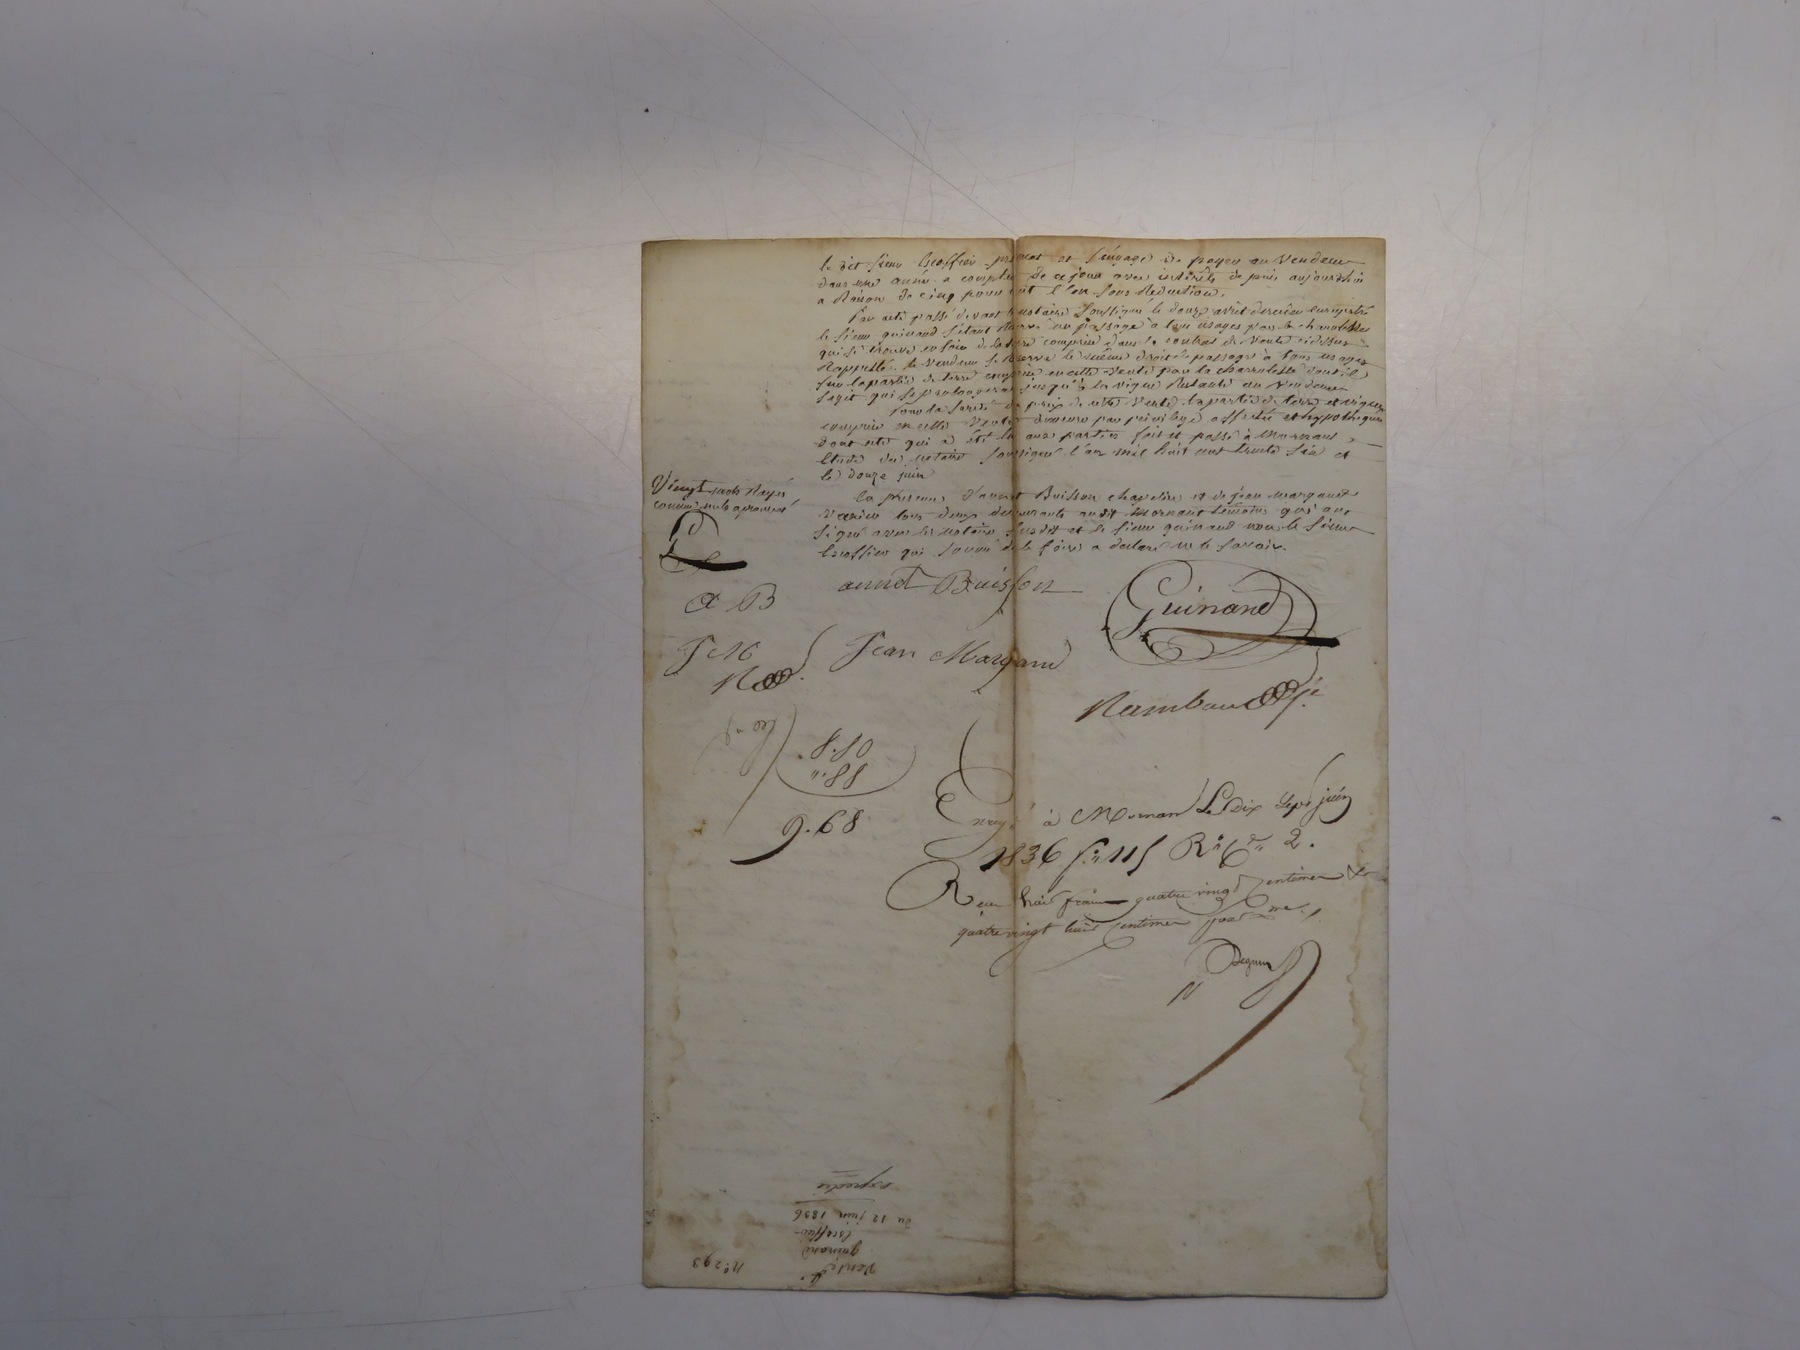 le dit sieur Escoffier promet et s'engage de payer au vendeur
dans une année a compter de ce jour avec intérêts de puis aujourdhui
a Raison de cinq pour cent l'an sous Reduction.
Par acte passé devant notaire soussigné le douze avril dernier enregistré
le sieur guinand s'étant réservé un passage à tous usages par la charolette
qui se trouve en soir de la terre comprise dans le contrat de vente cidessus
Rappellé. le vendeur se Réserve le même droit de passage à tous usages
sur la partie de terre comprise en cette vente par la charrolette dont il
s'agit qui se prolongera jusqu'à la vigne Restante au vendeur
Pour la sureté du prix de cette vente la partie de terre et vigne
comprise en cette vente demeure par privilege affectée et hypothequée
dont acte qui a été lu aux parties fait et passé à Mornant
Etude du notaire soussigné l'an mil huit cent trente six et
le douze juin
En présence d'annet Buisson chavelier et de jean margand
tous deux demeurants audit Mornant témoins qui ont
signé avec le notaire susdit et le sieur guinand non le sieur
Escoffier qui sommé de le faire a déclaré ne le savoir.
Vingt mots Rayés
comme nuls aprouvé
G
A B
J M
R
annet Buisson
Guinand
Jean Margand
Rambaud
8.80
".88
9.68
Enregé à Mornant Le Dix Sept juin
1836 fo 115 Ro Ce 2.
Recu huit francs quatre vingt centimes &
quatre vingt huit centimes pour
No 293
Vente
guinand
Escoffier
du 12 juin 1836
expediée